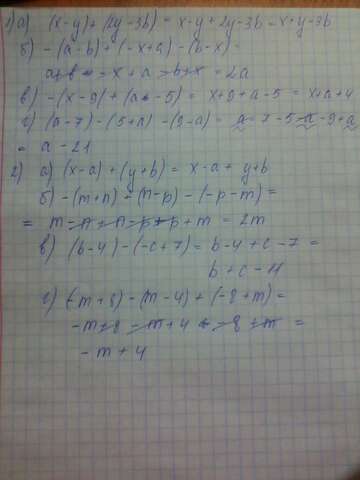 1) а) (x-y)+(2y-3b) = x-y+2y-3b = x+y-3b
б) -(a-b)+(-x+a)-(b-x)=
a+b-x+a-b+x = 2a
в) -(x-9)+(a-5) = x+9+a-5 = x+a+4
г) (a-7)-(5+a)-(9-a) = a-7-5-a-9+a
= a-21
2) а) (x-a)+(y+b) = x-a+y+b
б) -(m+n)-(n-p)-(-p-m)=
= m-n+n-p+p+m = 2m
в) (b-4)-(-c+7) = b-4+c-7 =
b+c-11
г) (-m+8)-(m-4)+(-8+m)=
-m+8-m+4-8+m =
-m+4